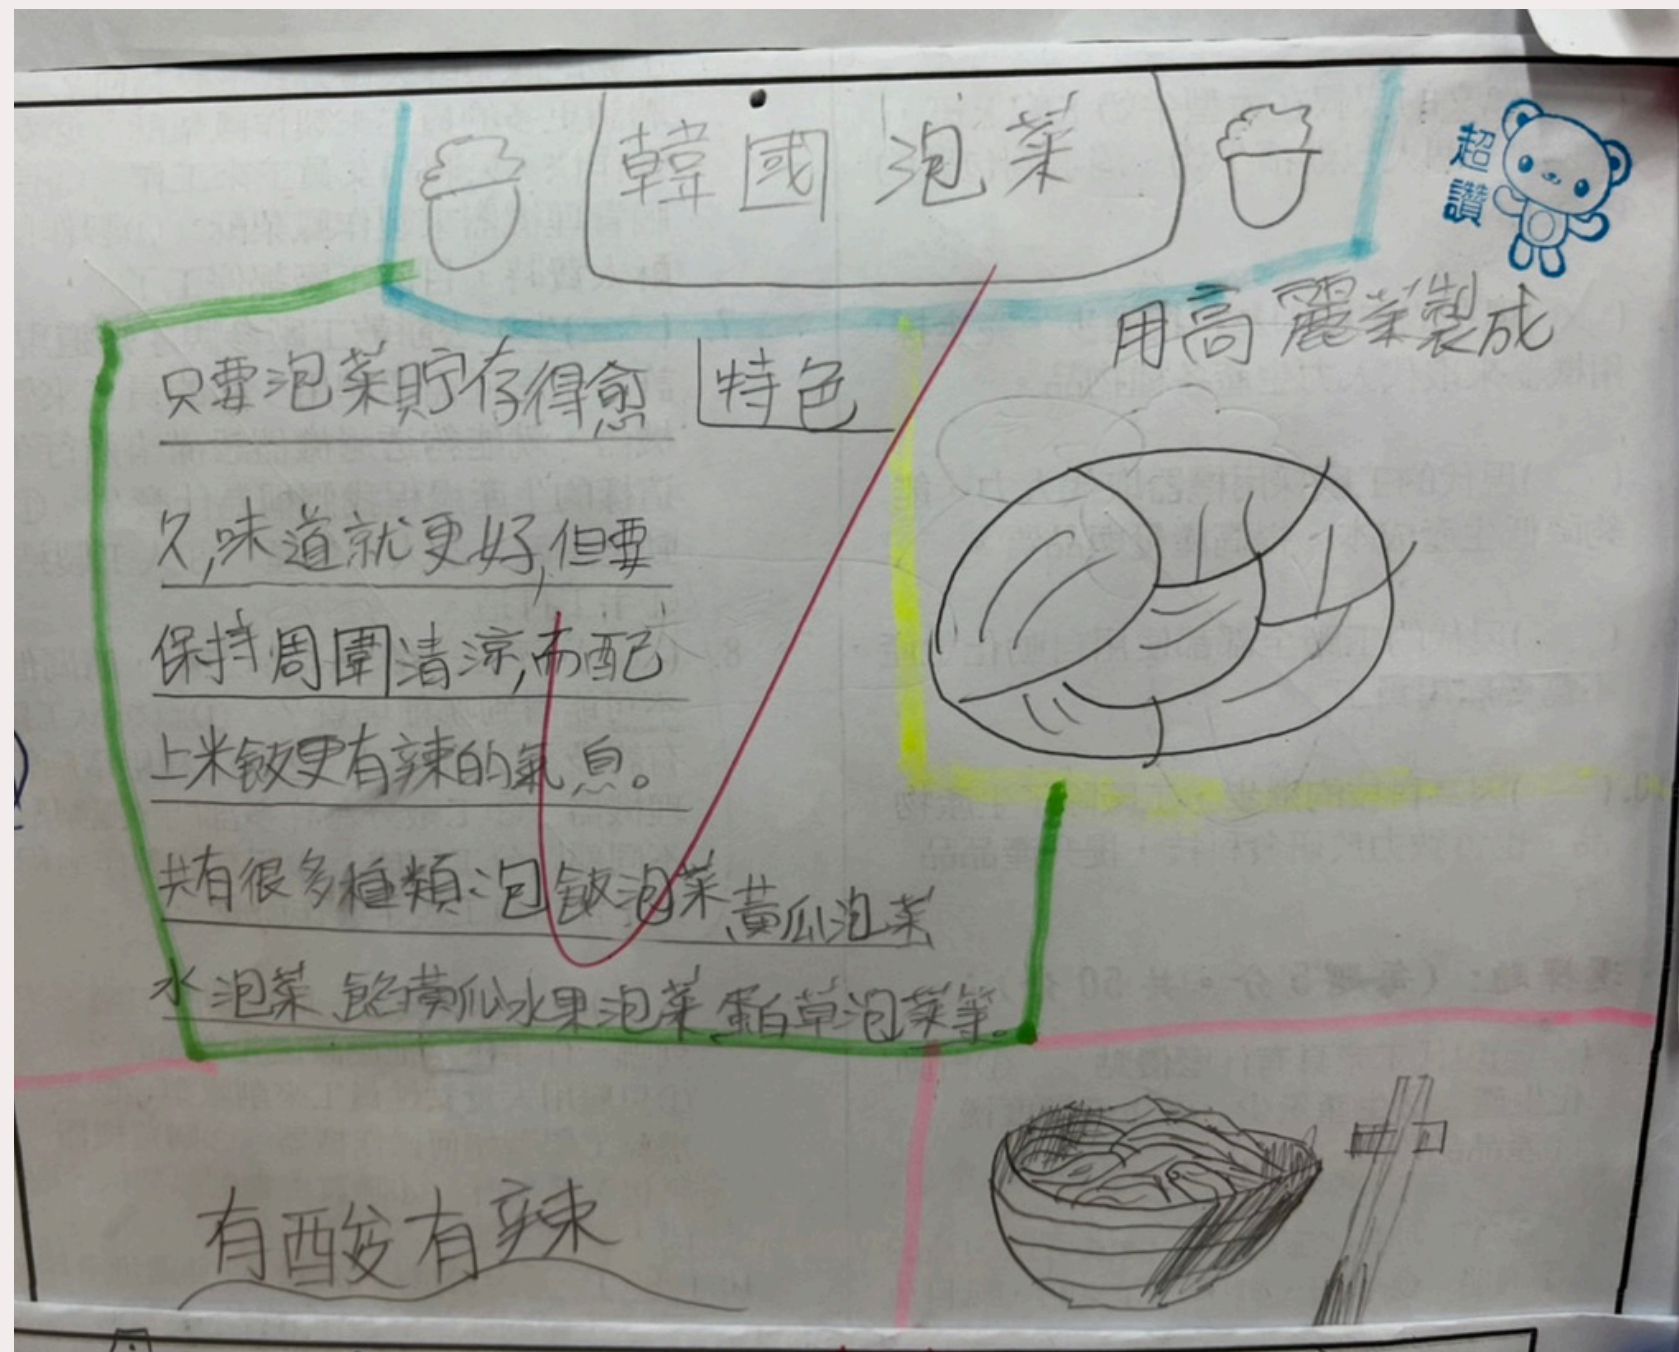 韓國泡菜
超
讚
特色
只要泡菜貯存得愈
久,味道就更好,但要
保持周圍清涼,而配
上米飯更有辣的氣息。
共有很多種類:包飯泡菜、黃瓜泡菜
水泡菜、餡黃瓜水果泡菜、蛋白草泡菜等。
用高麗菜製成
有酸有辣